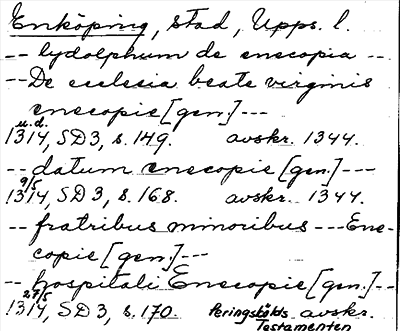 Enköping, stad, Upps. l.
-- lydolphum de enecopia --
-- De ecclesia beate virginis
enecopie [gen.] ---
u.d.
1314, SD 3, s. 149. avskr. 1344.
-- datum enecopie [gen.] ---
9/5
1314, SD 3, s. 168. avskr. 1344.
-- fratribus minoribus --- Ene-
copie [gen.] ---
-- hospitali Enecopie [gen.] --
27/5
1314, SD 3, s. 170. Peringskölds avskr.
Testamenten